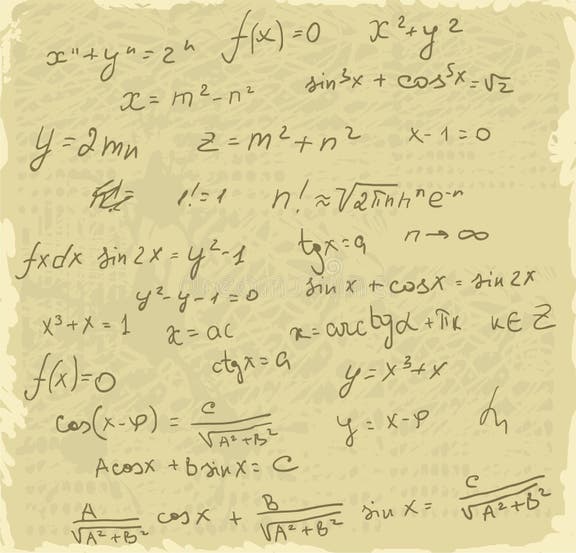 xⁿ + yⁿ = 2ⁿ f(x) = 0 x² + y 2
x = m² - n² sin³x + cos⁵x = √2
y = 2mn z = m² + n² x - 1 = 0
1! = 1 n! ≈ √2πn nⁿe⁻ⁿ
fxdx sin 2x = y² - 1 tgx = a n → ∞
y² - y - 1 = 0 sin x + cosx = sin 2x
x³ + x = 1 x = ac x = arctgα + πk k ∈ Z
f(x) = 0 ctgx = a y = x³ + x
cos(x - φ) = C/√A² + B² y = x - φ
Acosx + Bsinx = C
A/√A² + B² cos x + B/√A² + B² sin x = C/√A² + B²